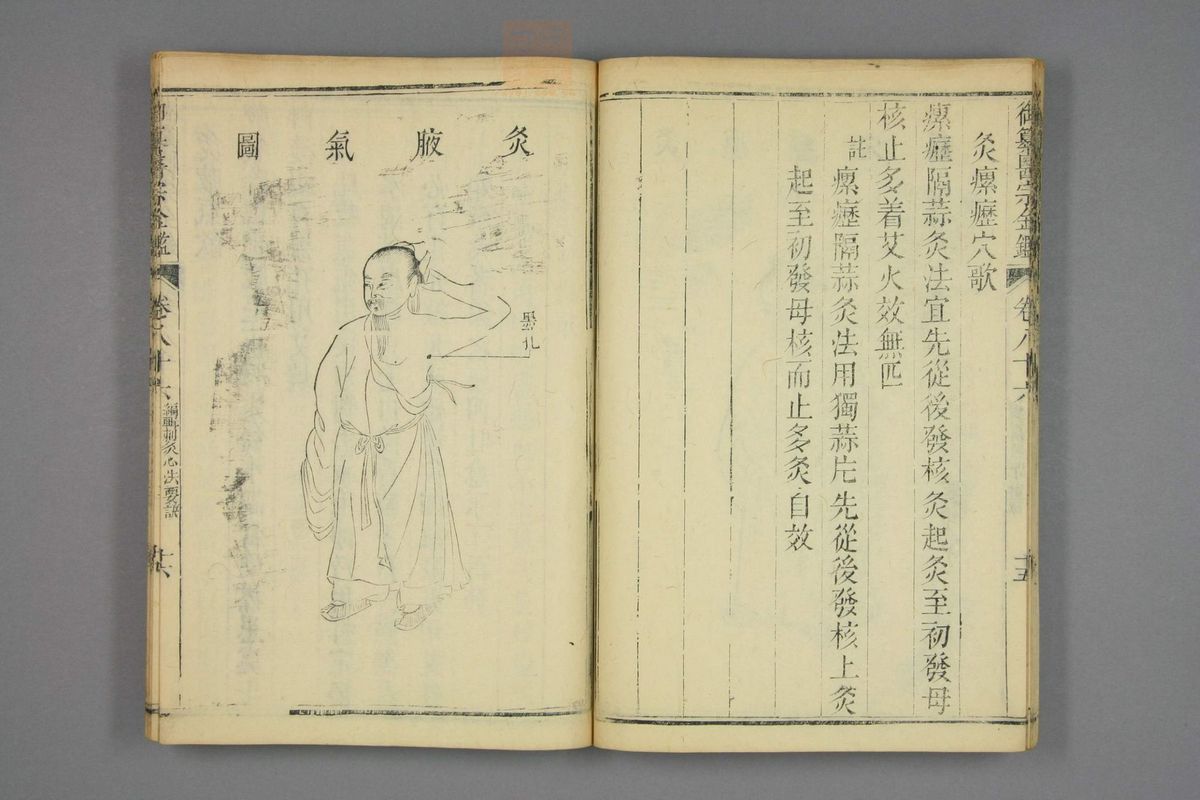 御纂醫宗金鑑 卷八十六 十五
灸瘰癧穴歌
瘰癧隔蒜灸法宜先從後發核灸起灸至初發母
核止多着艾火效無匹
註瘰癧隔蒜灸法用獨蒜片先從後發核上灸
起至初發母核而止多灸自效
灸腋氣圖
墨孔
御纂醫宗金鑑 卷八十六 編輯刺灸心法要訣